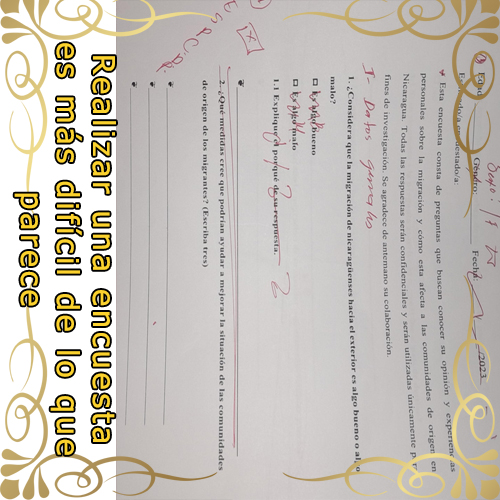 Realizar una encuesta
es más difícil de lo que
parece
Sexo: F
Género: Fecha: 2023
Encuestado/a
Esta encuesta consta de preguntas que buscan conocer su opinión y experiencias
personales sobre la migración y cómo esta afecta a las comunidades de origen en
Nicaragua. Todas las respuestas serán confidenciales y serán utilizadas únicamente
fines de investigación. Se agradece de antemano su colaboración.
I- Datos generales
1. ¿Considera que la migración de nicaragüenses hacia el exterior es algo bueno o algo
malo?
Es algo bueno
Es algo malo
1.1 Explique el porqué de su respuesta.
2. ¿Qué medidas cree que podrían ayudar a mejorar la situación de las comunidades
de origen de los migrantes? (Escriba tres)